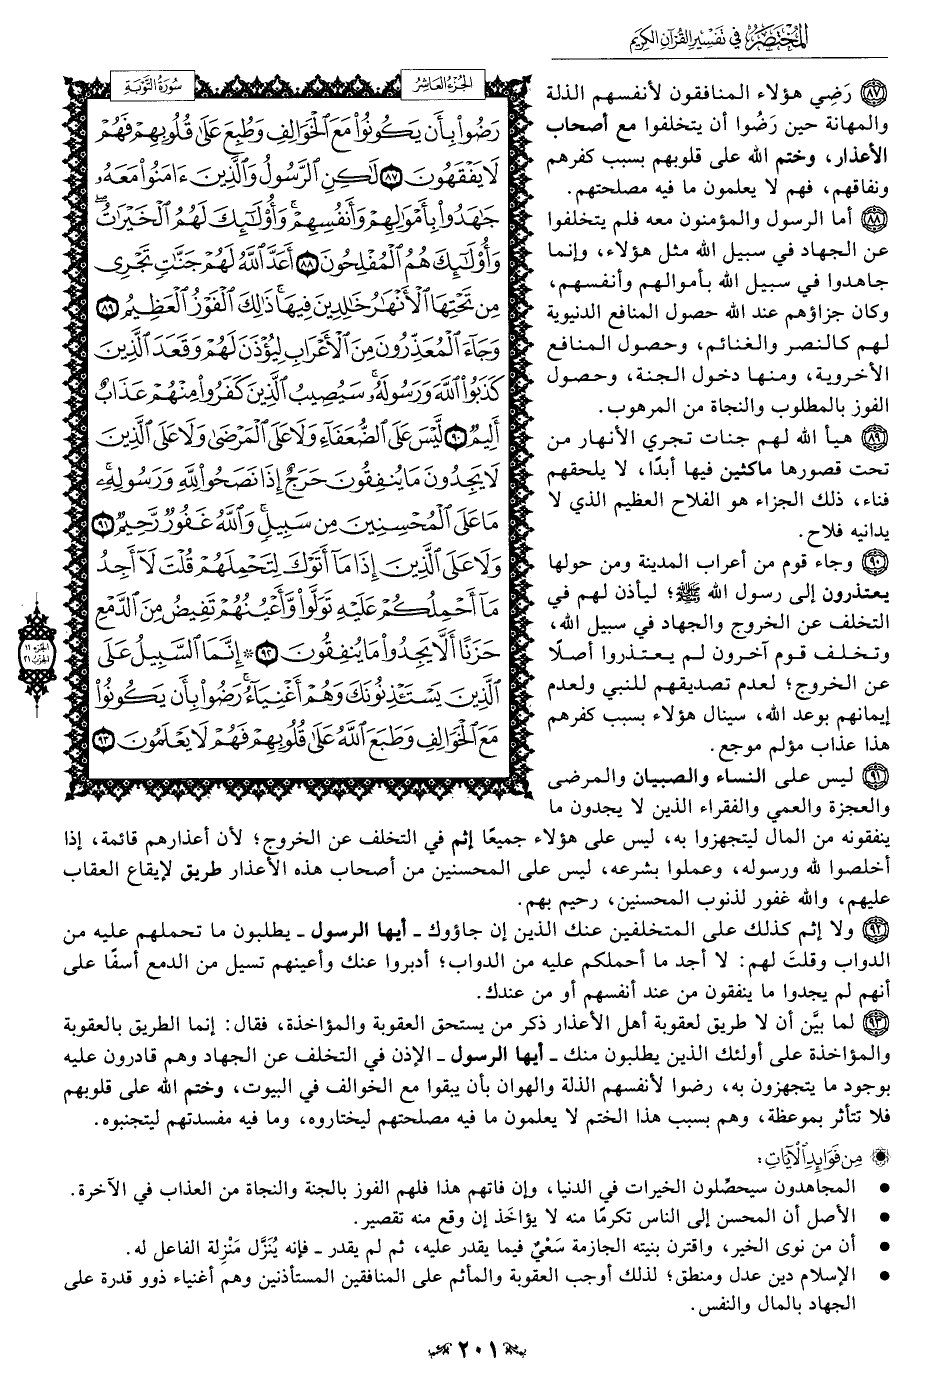 المختصر في تفسير القرآن الكريم
سورة التوبة
الجزء العاشر
رَضُوا۟ بِأَن يَكُونُوا۟ مَعَ ٱلْخَوَالِفِ وَطُبِعَ عَلَىٰ قُلُوبِهِمْ فَهُمْ
لَا يَفْقَهُونَ ٨٧ لَـٰكِنِ ٱلرَّسُولُ وَٱلَّذِينَ ءَامَنُوا۟ مَعَهُۥ
جَـٰهَدُوا۟ بِأَمْوَٰلِهِمْ وَأَنفُسِهِمْ ۚ وَأُو۟لَـٰٓئِكَ لَهُمُ ٱلْخَيْرَٰتُ ۖ
وَأُو۟لَـٰٓئِكَ هُمُ ٱلْمُفْلِحُونَ ٨٨ أَعَدَّ ٱللَّهُ لَهُمْ جَنَّـٰتٍ تَجْرِى
مِن تَحْتِهَا ٱلْأَنْهَـٰرُ خَـٰلِدِينَ فِيهَا ۚ ذَٰلِكَ ٱلْفَوْزُ ٱلْعَظِيمُ ٨٩
وَجَآءَ ٱلْمُعَذِّرُونَ مِنَ ٱلْأَعْرَابِ لِيُؤْذَنَ لَهُمْ وَقَعَدَ ٱلَّذِينَ
كَذَبُوا۟ ٱللَّهَ وَرَسُولَهُۥ ۚ سَيُصِيبُ ٱلَّذِينَ كَفَرُوا۟ مِنْهُمْ عَذَابٌ
أَلِيمٌ ٩٠ لَّيْسَ عَلَى ٱلضُّعَفَآءِ وَلَا عَلَى ٱلْمَرْضَىٰ وَلَا عَلَى ٱلَّذِينَ
لَا يَجِدُونَ مَا يُنفِقُونَ حَرَجٌ إِذَا نَصَحُوا۟ لِلَّهِ وَرَسُولِهِۦ ۚ
مَا عَلَى ٱلْمُحْسِنِينَ مِن سَبِيلٍ ۚ وَٱللَّهُ غَفُورٌ رَّحِيمٌ ٩١
وَلَا عَلَى ٱلَّذِينَ إِذَا مَآ أَتَوْكَ لِتَحْمِلَهُمْ قُلْتَ لَآ أَجِدُ
مَآ أَحْمِلُكُمْ عَلَيْهِ تَوَلَّوا۟ وَّأَعْيُنُهُمْ تَفِيضُ مِنَ ٱلدَّمْعِ
حَزَنًا أَلَّا يَجِدُوا۟ مَا يُنفِقُونَ ٩٢ ۞ إِنَّمَا ٱلسَّبِيلُ عَلَى
ٱلَّذِينَ يَسْتَـْٔذِنُونَكَ وَهُمْ أَغْنِيَآءُ ۚ رَضُوا۟ بِأَن يَكُونُوا۟
مَعَ ٱلْخَوَالِفِ وَطَبَعَ ٱللَّهُ عَلَىٰ قُلُوبِهِمْ فَهُمْ لَا يَعْلَمُونَ ٩٣
الجزء ١١
الحزب ٢١
٨٧ رَضِي هؤلاء المنافقون لأنفسهم الذلة
والمهانة حين رَضُوا أن يتخلفوا مع أصحاب
الأعذار، وختم الله على قلوبهم بسبب كفرهم
ونفاقهم، فهم لا يعلمون ما فيه مصلحتهم.
٨٨ أما الرسول والمؤمنون معه فلم يتخلفوا
عن الجهاد في سبيل الله مثل هؤلاء، وإنما
جاهدوا في سبيل الله بأموالهم وأنفسهم،
وكان جزاؤهم عند الله حصول المنافع الدنيوية
لهم كالنصر والغنائم، وحصول المنافع
الأخروية، ومنها دخول الجنة، وحصول
الفوز بالمطلوب والنجاة من المرهوب.
٨٩ هيأ الله لهم جنات تجري الأنهار من
تحت قصورها ماكثين فيها أبدًا، لا يلحقهم
فناء، ذلك الجزاء هو الفلاح العظيم الذي لا
يدانيه فلاح.
٩٠ وجاء قوم من أعراب المدينة ومن حولها
يعتذرون إلى رسول الله ﷺ؛ ليأذن لهم في
التخلف عن الخروج والجهاد في سبيل الله،
وتخلف قوم آخرون لم يعتذروا أصلًا
عن الخروج؛ لعدم تصديقهم للنبي ولعدم
إيمانهم بوعد الله، سينال هؤلاء بسبب كفرهم
هذا عذاب مؤلم موجع.
٩١ ليس على النساء والصبيان والمرضى
والعجزة والعمي والفقراء الذين لا يجدون ما
ينفقونه من المال ليتجهزوا به، ليس على هؤلاء جميعًا إثم في التخلف عن الخروج؛ لأن أعذارهم قائمة، إذا
أخلصوا لله ورسوله، وعملوا بشرعه، ليس على المحسنين من أصحاب هذه الأعذار طريق لإيقاع العقاب
عليهم، والله غفور لذنوب المحسنين، رحيم بهم.
٩٢ ولا إثم كذلك على المتخلفين عنك الذين إن جاؤوك ـ أيها الرسول ـ يطلبون ما تحملهم عليه من
الدواب وقلتَ لهم: لا أجد ما أحملكم عليه من الدواب؛ أدبروا عنك وأعينهم تسيل من الدمع أسفًا على
أنهم لم يجدوا ما ينفقون من عند أنفسهم أو من عندك.
٩٣ لما بيَّن أن لا طريق لعقوبة أهل الأعذار ذكر من يستحق العقوبة والمؤاخذة، فقال: إنما الطريق بالعقوبة
والمؤاخذة على أولئك الذين يطلبون منك ـ أيها الرسول ـ الإذن في التخلف عن الجهاد وهم قادرون عليه
بوجود ما يتجهزون به، رضوا لأنفسهم الذلة والهوان بأن يبقوا مع الخوالف في البيوت، وختم الله على قلوبهم
فلا تتأثر بموعظة، وهم بسبب هذا الختم لا يعلمون ما فيه مصلحتهم ليختاروه، وما فيه مفسدتهم ليتجنبوه.
من فوائد الآيات:
● المجاهدون سيحصِّلون الخيرات في الدنيا، وإن فاتهم هذا فلهم الفوز بالجنة والنجاة من العذاب في الآخرة.
● الأصل أن المحسن إلى الناس تكرمًا منه لا يؤاخَذ إن وقع منه تقصير.
● أن من نوى الخير، واقترن بنيته الجازمة سَعْيٌ فيما يقدر عليه، ثم لم يقدر ـ فإنه يُنَزَّل مَنْزِلة الفاعل له.
● الإسلام دين عدل ومنطق؛ لذلك أوجب العقوبة والمأثم على المنافقين المستأذنين وهم أغنياء ذوو قدرة على
الجهاد بالمال والنفس.
٢٠١